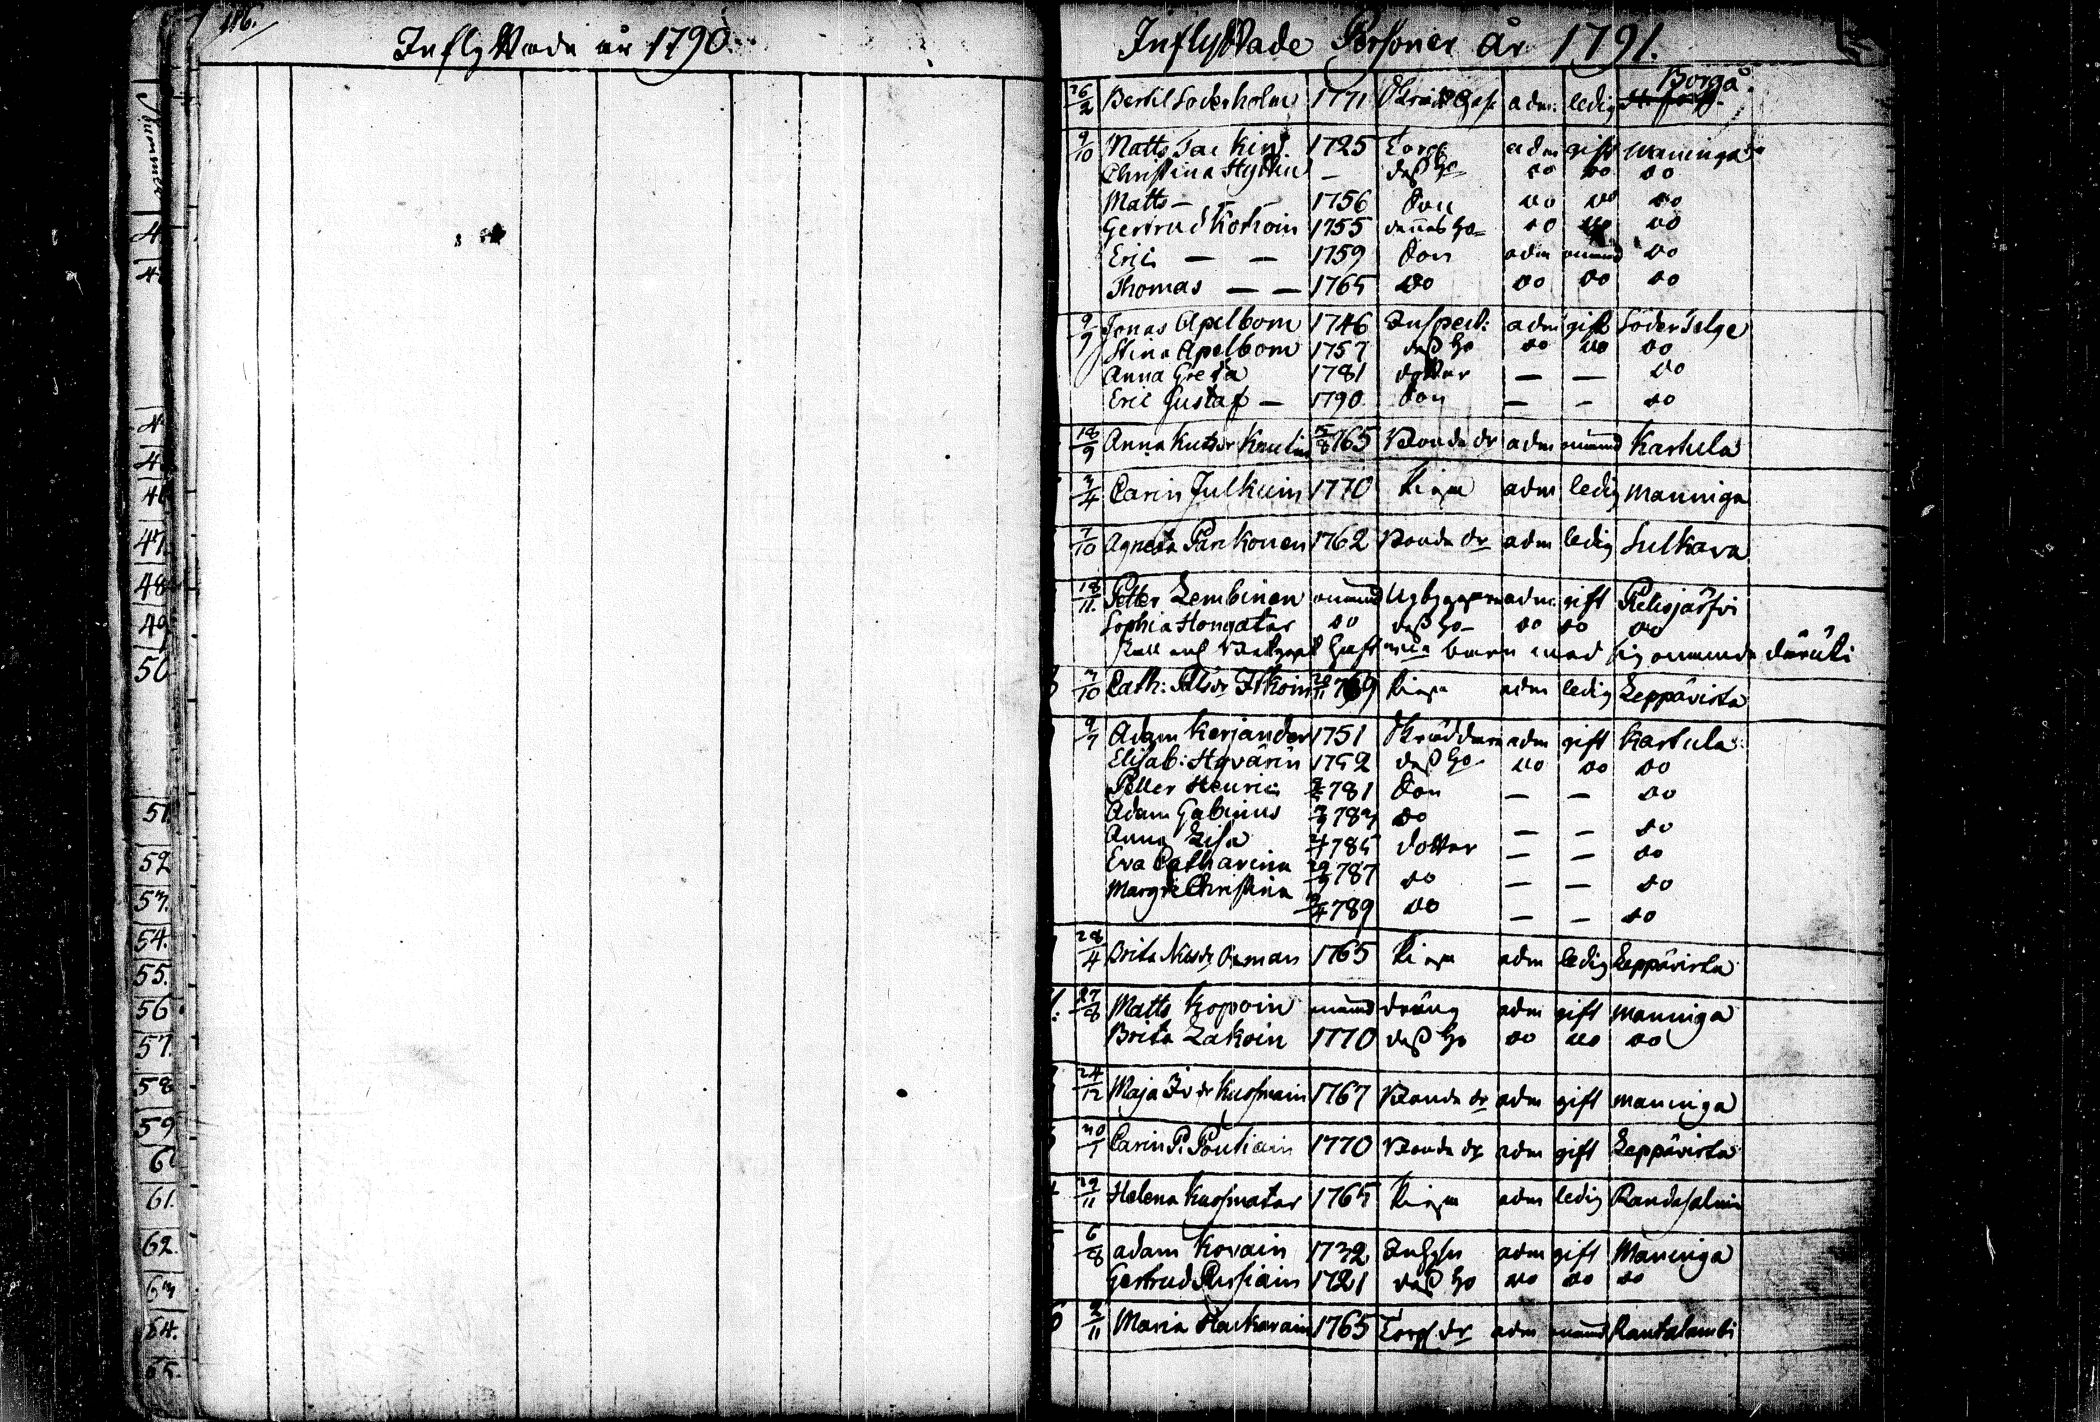 116.
Inflyttade år 1790.
Inflyttade Personer år 1791.
Borgå
26/2 Bertil Söderholm 1771 adm: ledig
9/10 Matts 1725 Torp adm gift Maninga
Christina Hyttin — dess ho do do do
Matts — 1756 Son do do do
Gertrud Kokoin 1755 dennes ho do do do
Eric — — 1759 Son adm onämd do
Thomas — — 1765 do do do do
9/9 Jonas Apelbom 1746 Inspect: adm gift Södertelge
Stina Apelbom 1757 dess ho do do do
Anna Greta 1781 dotter — — do
Eric Gustaf — 1790 Son — — do
18/9 Anna 1765 Bonde dr adm onämd Kartula
3/4 Carin Julkuin 1770 Piga adm ledig Maninga
7/10 Agneta Parkonen 1762 Bonde dr adm ledig Sulkava
18/11 Petter Lembinen onämd Nybyggare adm gift Pielisjärfvi
Sophia Hongatar do dess ho do do do
barn med sig onämde däruti
7/10 Cath: Itkoin 769 Piga adm ledig Leppävirta
9/7 Adam Kerjander 1751 Skräddare adm gift Kartula
Elisab: Hyvärin 1752 dess ho do do do
Petter Henric 781 Son — — do
Adam Gabinus 783 do — — do
Anna Lisa 785 dotter — — do
Eva Catharina 787 do — — do
Margr: Christina 789 do — — do
28/4 Brita 1765 Piga adm ledig Leppävirta
27/8 Matts Koponin onämd dräng adm gift Maninga
Brita Lakoin 1770 dess ho do do do
24/12 Maja 1767 Bonde dr adm gift Maninga
Carin P. Poutiain 1770 Bonde dr adm gift Leppävirta
29/11 Helena Kuosmatar 1765 Piga adm ledig Randasalmi
6/8 Adam Kovain 1732 Inhys adm gift Maninga
Gertrud 1721 dess ho do do do
2/11 Maria Hackarain 1765 Torp dr adm onämd Rautalambi
46
47.
48
49
50
51.
52
53.
54.
55.
56
57.
58
59
61.
62.
63
64.
65.